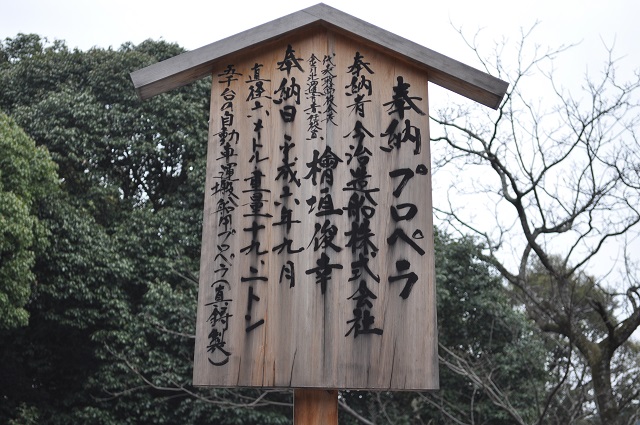 奉納プロペラ
奉納者 今治造船株式会社
檜垣俊幸
奉納日 平成六年九月
直径六メートル 重量十九、二トン
台の自動車運搬船用プロペラ(真鍮製)